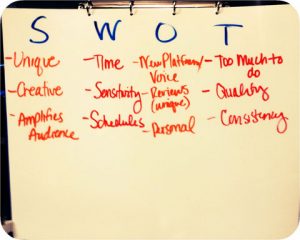 S W O T
-Unique
-Creative
-Amplifies
Audience
-Time
-Sensitivity
-Schedules
-New Platform/
Voice
-Reviews
(unique)
-Personal
-Too Much to
do
-Quality
-Consistency